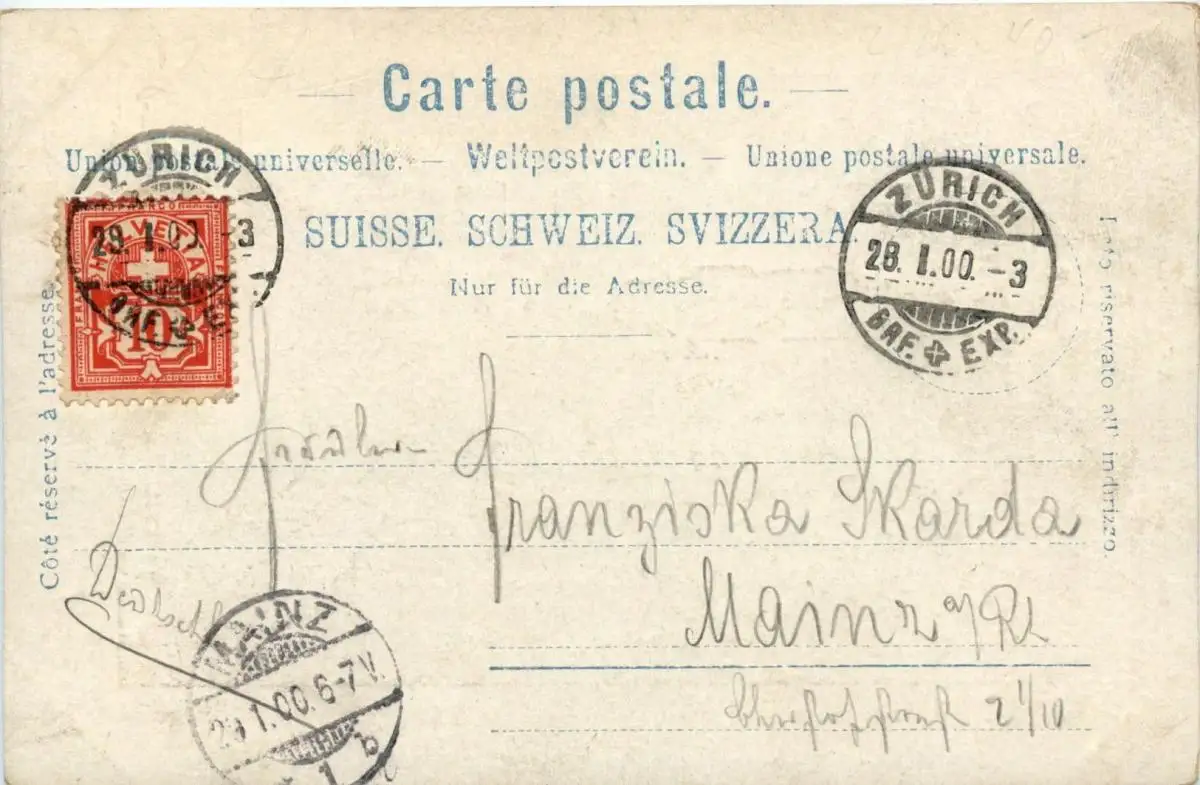 Carte postale.
Union postale universelle. — Weltpostverein. — Unione postale universale.
SUISSE. SCHWEIZ. SVIZZERA.
Nur für die Adresse.
Côté réservé à l'adresse.
Lato riservato all' indirizzo.
ZÜRICH
29. I. 00 -3
BRF. EXP.
FRANCO
HELVETIA
10
ZÜRICH
28. I. 00. -3
BRF. EXP.
Fräulein
Franziska Skarda
Mainz a/Rh
2 1/10
MAINZ
29.1.00.6-7V.
* 1 b